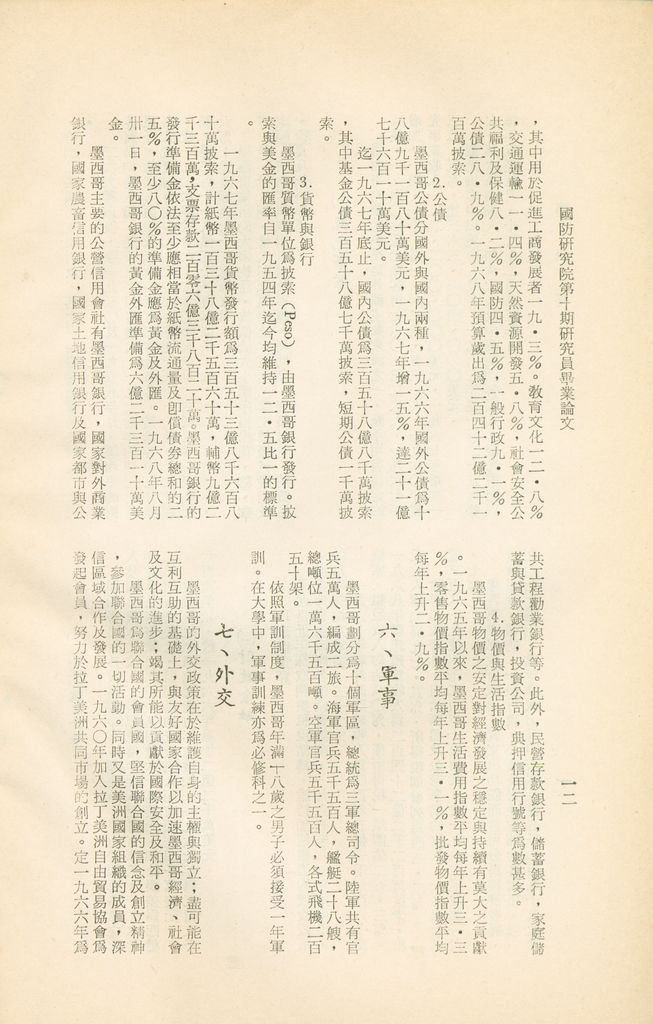 國防研究院第十期研究員畢業論文
一二
，其中用於促進工商發展者一九・三％。教育文化一二・八％
，交通運輸一一・四％，天然資源開發五・八％，社會安全公
共福利及保健八・二％，國防四・五％，一般行政九・一％，
公債二八・九％。一九六八年預算歲出爲二百四十二億二千一
百萬披索。
2.公債
墨西哥公債分國外與國內兩種，一九六六年國外公債爲十
八億九千一百八十萬美元，一九六七年增一五％，達二十一億
七千六百一十萬美元。
迄一九六七年底止，國內公債爲三百五十八億八千萬披索
，其中基金公債三百五十八億七千萬披索，短期公債一千萬披
索。
3.貨幣與銀行
墨西哥貨幣單位爲披索（Peso），由墨西哥銀行發行。披
索與美金的匯率自一九五四年迄今均維持一二・五比一的標準
。
一九六七年墨西哥貨幣發行額爲三百五十三億八千六百八
十萬披索，計紙幣一百三十八億二千五百六十萬，輔幣九億二
千三百萬，支票存款二百零六億三千八百二十萬。墨西哥銀行的
發行準備金依法至少應相當於紙幣流通量及即償債券總和的二
五％，至少八〇％的準備金應爲黃金及外匯。一九六八年八月
卅一日，墨西哥銀行的黃金外匯準備爲六億二千三百一十萬美
金。
墨西哥主要的公營信用會社有墨西哥銀行，國家對外商業
銀行，國家農畜信用銀行，國家土地信用銀行及國家都市與公
共工程勸業銀行等。此外，民營存款銀行，儲蓄銀行，家庭儲
蓄與貸款銀行，投資公司，典押信用行號等爲數甚多。
4.物價與生活指數
墨西哥物價之安定對經濟發展之穩定與持續有莫大之貢獻
。一九六五年以來，墨西哥生活費用指數平均每年上升三・三
％，零售物價指數平均每年上升三・一％，批發物價指數平均
每年上升二・九％。
六、軍事
墨西哥劃分爲十個軍區，總統爲三軍總司令。陸軍共有官
兵五萬人，編成二旅。海軍官兵五千五百人，艦艇二十八艘，
總噸位一萬六千五百噸。空軍官兵五千五百人，各式飛機二百
五十架。
依照軍訓制度，墨西哥年滿十八歲之男子必須接受一年軍
訓。在大學中，軍事訓練亦爲必修科之一。
七、外交
墨西哥的外交政策在於維護自身的主權與獨立；盡可能在
互利互助的基礎上，與友好國家合作以加速墨西哥經濟、社會
及文化的進步；竭其所能以貢獻於國際安全及和平。
墨西哥爲聯合國的會員國，堅信聯合國的信念及創立精神
，參加聯合國的一切活動。同時又是美洲國家組織的成員，深
信區域合作及發展。一九六〇年加入拉丁美洲自由貿易協會爲
發起會員，努力於拉丁美洲共同市場的創立。定一九六六年爲